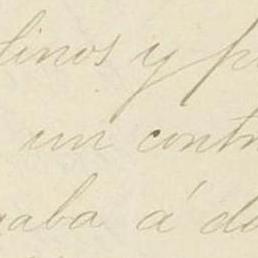 linos y p
un contr
gaba á d